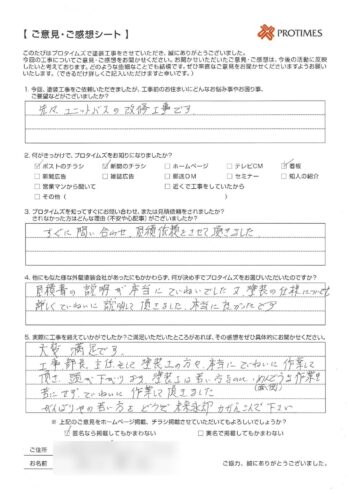 【 ご意見・ご感想シート 】
PROTIMES
このたびはプロタイムズで塗装工事をさせていただき、誠にありがとうございました。
今回の工事についてご意見・ご感想をお聞かせください。お聞かせいただいたご意見・ご感想は、今後の活動に反映
したいと考えております。どのような些細なことでも結構です。ぜひ率直なご意見をお聞かせくださいますようお願い
いたします。(できるだけ詳しくご記入いただけますと幸いです。)
1. 今回、塗装工事をご依頼いただきましたが、工事前のお住まいにどんなお悩み事やお困り事、
ご要望などがございましたか?
ユニットバスの改修工事です
2. 何がきっかけで、プロタイムズをお知りになりましたか?
☑ポストのチラシ ☑新聞のチラシ □ホームページ □テレビCM ☑看板
□新聞広告 □雑誌広告 □郵送DM □セミナー □知人の紹介
□営業マンから聞いて □近くで工事をしていたから
□その他( )
3. プロタイムズを知ってすぐにお問い合わせ、または見積依頼をされましたか?
されなかった方はどんな理由(不安や心配事)がございましたか?
すぐに問い合わせ、見積依頼をさせて頂きました
4. 他にも似た様な外壁塗装会社があったにもかかわらず、何が決め手でプロタイムズをお選びいただいたのですか?
見積書の説明が本当にていねいでした又、塗装の仕様についても
詳しくていねいに説明して頂きました、本当に良かったです
5. 実際に工事を終えていかがでしたか?ご満足いただいたところがあれば、その感想をぜひ具体的にお聞かせください。
大変満足です。
工事部長、主任そして塗装工の方々、本当にていねいに作業して
頂き、頭が下がります 塗装工は若い方なのに、めんどうな作業を
苦にせず、ていねいに作業して頂きました
がんばりやの若い方を どうぞ
※上記のご意見をホームページ掲載、チラシ掲載させていただいてもよろしいでしょうか?
☑匿名なら掲載してもかまわない □実名で掲載してもかまわない
ご住所
お名前
ご協力、誠にありがとうございました。